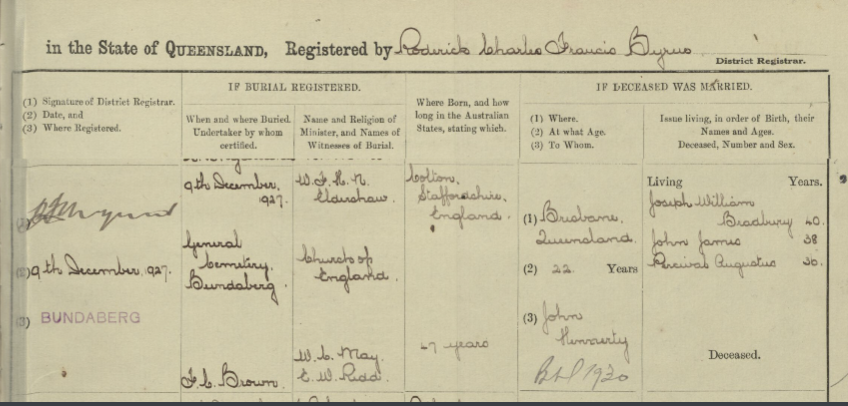 in the State of QUEENSLAND, Registered by Roderick Charles Francis Byrne
District Registrar.
(1) Signature of District Registrar.
(2) Date, and
(3) Where Registered.
IF BURIAL REGISTERED.
When and where Buried.
Undertaker by whom
certified.
Name and Religion of
Minister, and Names of
Witnesses of Burial.
Where Born, and how
long in the Australian
States, stating which.
IF DECEASED WAS MARRIED.
(1) Where.
(2) At what Age.
(3) To Whom.
Issue living, in order of Birth, their
Names and Ages.
Deceased, Number and Sex.
(2) 9th December, 1927.
(3) BUNDABERG
9th December,
1927.
General
Cemetery.
Bundaberg.
F. C. Brown.
W. F. H. N.
Eldershaw.
Church of
England.
W. C. May.
E. W. Kidd.
Colton,
Staffordshire,
England.
47 years
(1) Brisbane,
Queensland.
(2) 22 Years
(3) John
1930
Living Years.
Joseph William
Bradbury 40.
John James 38
Percival Augustus 36.
Deceased.